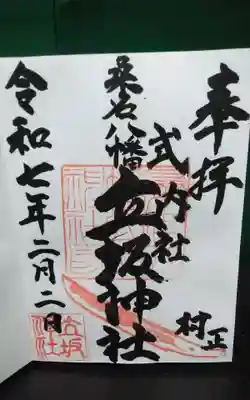 奉拝
式内社
桑名八幡
立坂神社
村正
令和七年二月二日
立坂神社